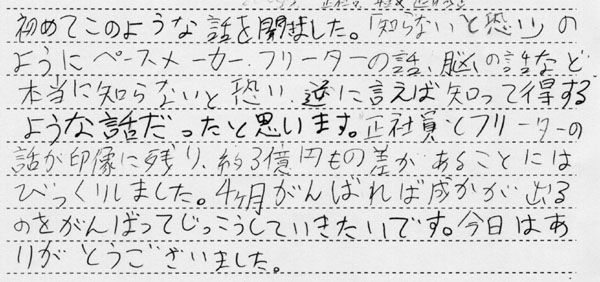 初めてこのような話を聞きました。「知らないと恐い」の
ようにペースメーカー、フリーターの話、脳の話など
本当に知らないと恐い、逆に言えば知って得する
ような話だったと思います。正社員とフリーターの
話が印像に残り、約3億円もの差があることには
びっくりしました。4ヶ月がんばれば成かが出る
のをがんばってじっこうしていきたいです。今日はあ
りがとうございました。